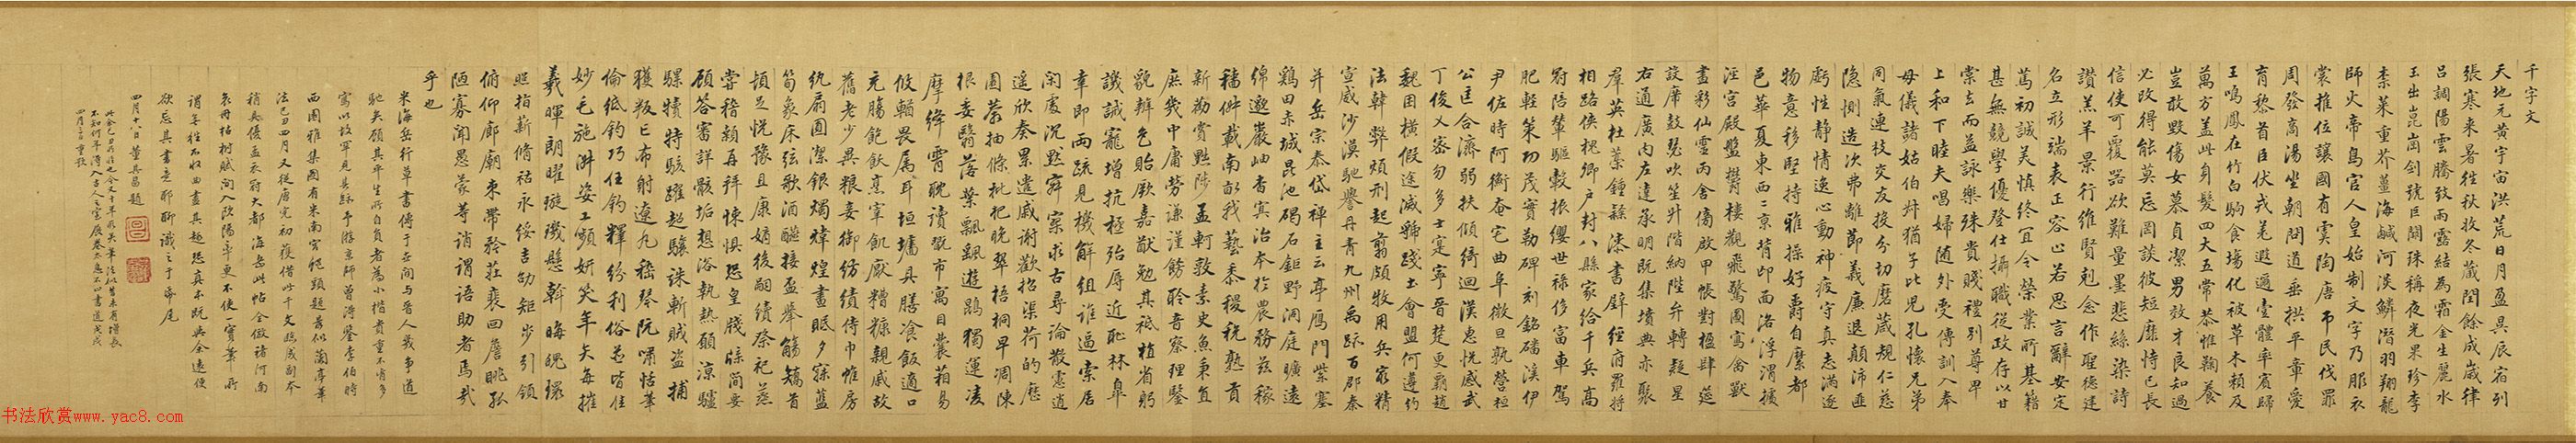 千字文
天地元黄宇宙洪荒日月盈昃辰宿列
張寒来暑往秋收冬藏閏餘成歲律
吕調陽雲騰致雨露結為霜金生麗水
玉出崑崗劍號巨闕珠稱夜光果珍李
柰菜重芥薑海鹹河淡鱗潛羽翔龍
師火帝鳥官人皇始制文字乃服衣
裳推位讓國有虞陶唐弔民伐罪
周發商湯坐朝問道垂拱平章愛
育黎首臣伏戎羌遐邇壹體率賓歸
王鳴鳳在竹白駒食場化被草木賴及
萬方盖此身髮四大五常恭惟鞠養
豈敢毁傷女慕貞潔男效才良知過
必改得能莫忘罔談彼短靡恃己長
信使可覆器欲難量墨悲絲染詩
讚羔羊景行維賢剋念作聖德建
名立形端表正容止若思言辭安定
篤初誠美慎終宜令榮業所基籍
甚無競學優登仕攝職從政存以甘
棠去而益詠樂殊貴賤禮別尊卑
上和下睦夫唱婦随外受傅訓入奉
母儀諸姑伯叔猶子比兒孔懷兄弟
同氣連枝交友投分切磨箴規仁慈
隐惻造次弗離節義廉退顛沛匪
虧性靜情逸心動神疲守真志滿逐
物意移堅持雅操好爵自縻都
邑華夏東西二京背邙面洛浮渭據
涇宫殿盤鬱樓觀飛驚圖寫禽獸
畫彩仙靈丙舍傍啟甲帳對楹肆筵
設席鼓瑟吹笙升階納陛弁轉疑星
右通廣内左達承明既集墳典亦聚
羣英杜藁鍾隸漆書壁經府羅將
相路俠槐卿户封八縣家給千兵高
冠陪輦驅轂振纓世禄侈富車駕
肥輕策功茂實勒碑刻銘磻溪伊
尹佐時阿衡奄宅曲阜微旦孰營桓
公匡合濟弱扶傾綺迴漢惠悦感武
丁俊乂密勿多士寔寧晉楚更霸趙
魏困橫假途滅虢踐土會盟何遵約
法韓弊煩刑起翦頗牧用兵最精
宣威沙漠馳譽丹青九州禹跡百郡秦
并岳宗泰岱禪主云亭雁門紫塞
鷄田赤城昆池碣石鉅野洞庭曠遠
綿邈巖岫杳冥治本於農務兹稼
穡俶載南畝我藝黍稷税熟貢
新勸賞黜陟孟軻敦素史魚秉直
庶幾中庸勞謙謹敕聆音察理鑒
貌辨色貽厥嘉猷勉其祗植省躬
譏誡寵增抗極殆辱近恥林皋
幸即兩疏見機解組誰逼索居
閑處沉默寂寥求古尋論散慮逍
遥欣奏累遣慼謝歡招渠荷的歷
園莽抽條枇杷晚翠梧桐早凋陳
根委翳落葉飄飖遊鵾獨運凌
摩絳霄耽讀翫市寓目囊箱易
輶攸畏属耳垣墻具膳飡飯適口
充腸飽飫烹宰飢厭糟糠親戚故
舊老少異粮妾御紡績侍巾帷房
紈扇圓潔銀燭煒煌晝眠夕寐藍
筍象床弦歌酒讌接盃舉觴矯首
頓足悦豫且康嫡後嗣續祭祀蒸
嘗稽顙再拜悚懼恐皇牋牒簡要
顧答審詳骸垢想浴執熱願凉驢
騾犢特駭躍超驤誅斬賊盗捕
獲叛亡布射遼丸嵇琴阮嘯恬筆
倫紙鈞巧任釣釋紛利俗並皆佳
妙毛施淑姿工顰妍笑年矢每摧
羲暉朗曜璇璣懸斡晦魄環
照指薪脩祜永綏吉劭矩步引領
俯仰廊廟束帶矜莊裴回瞻眺孤
陋寡聞愚蒙等誚謂語助者焉哉
乎也
米海岳行草書傳于世間與晉人幾爭道
馳矣顧其平生所自負者為小楷貴重不肯多
寫以故罕見其跡予游京師曾得鑒李伯時
西園雅集圖有米南宫細題
法己丑四月又從唐完初獲借此千文
衷冊枯樹賦
謂
欲忘其書意聊識之于帋尾
四月十八日董其昌題
四月三日重題
书法欣赏www.yac8.com